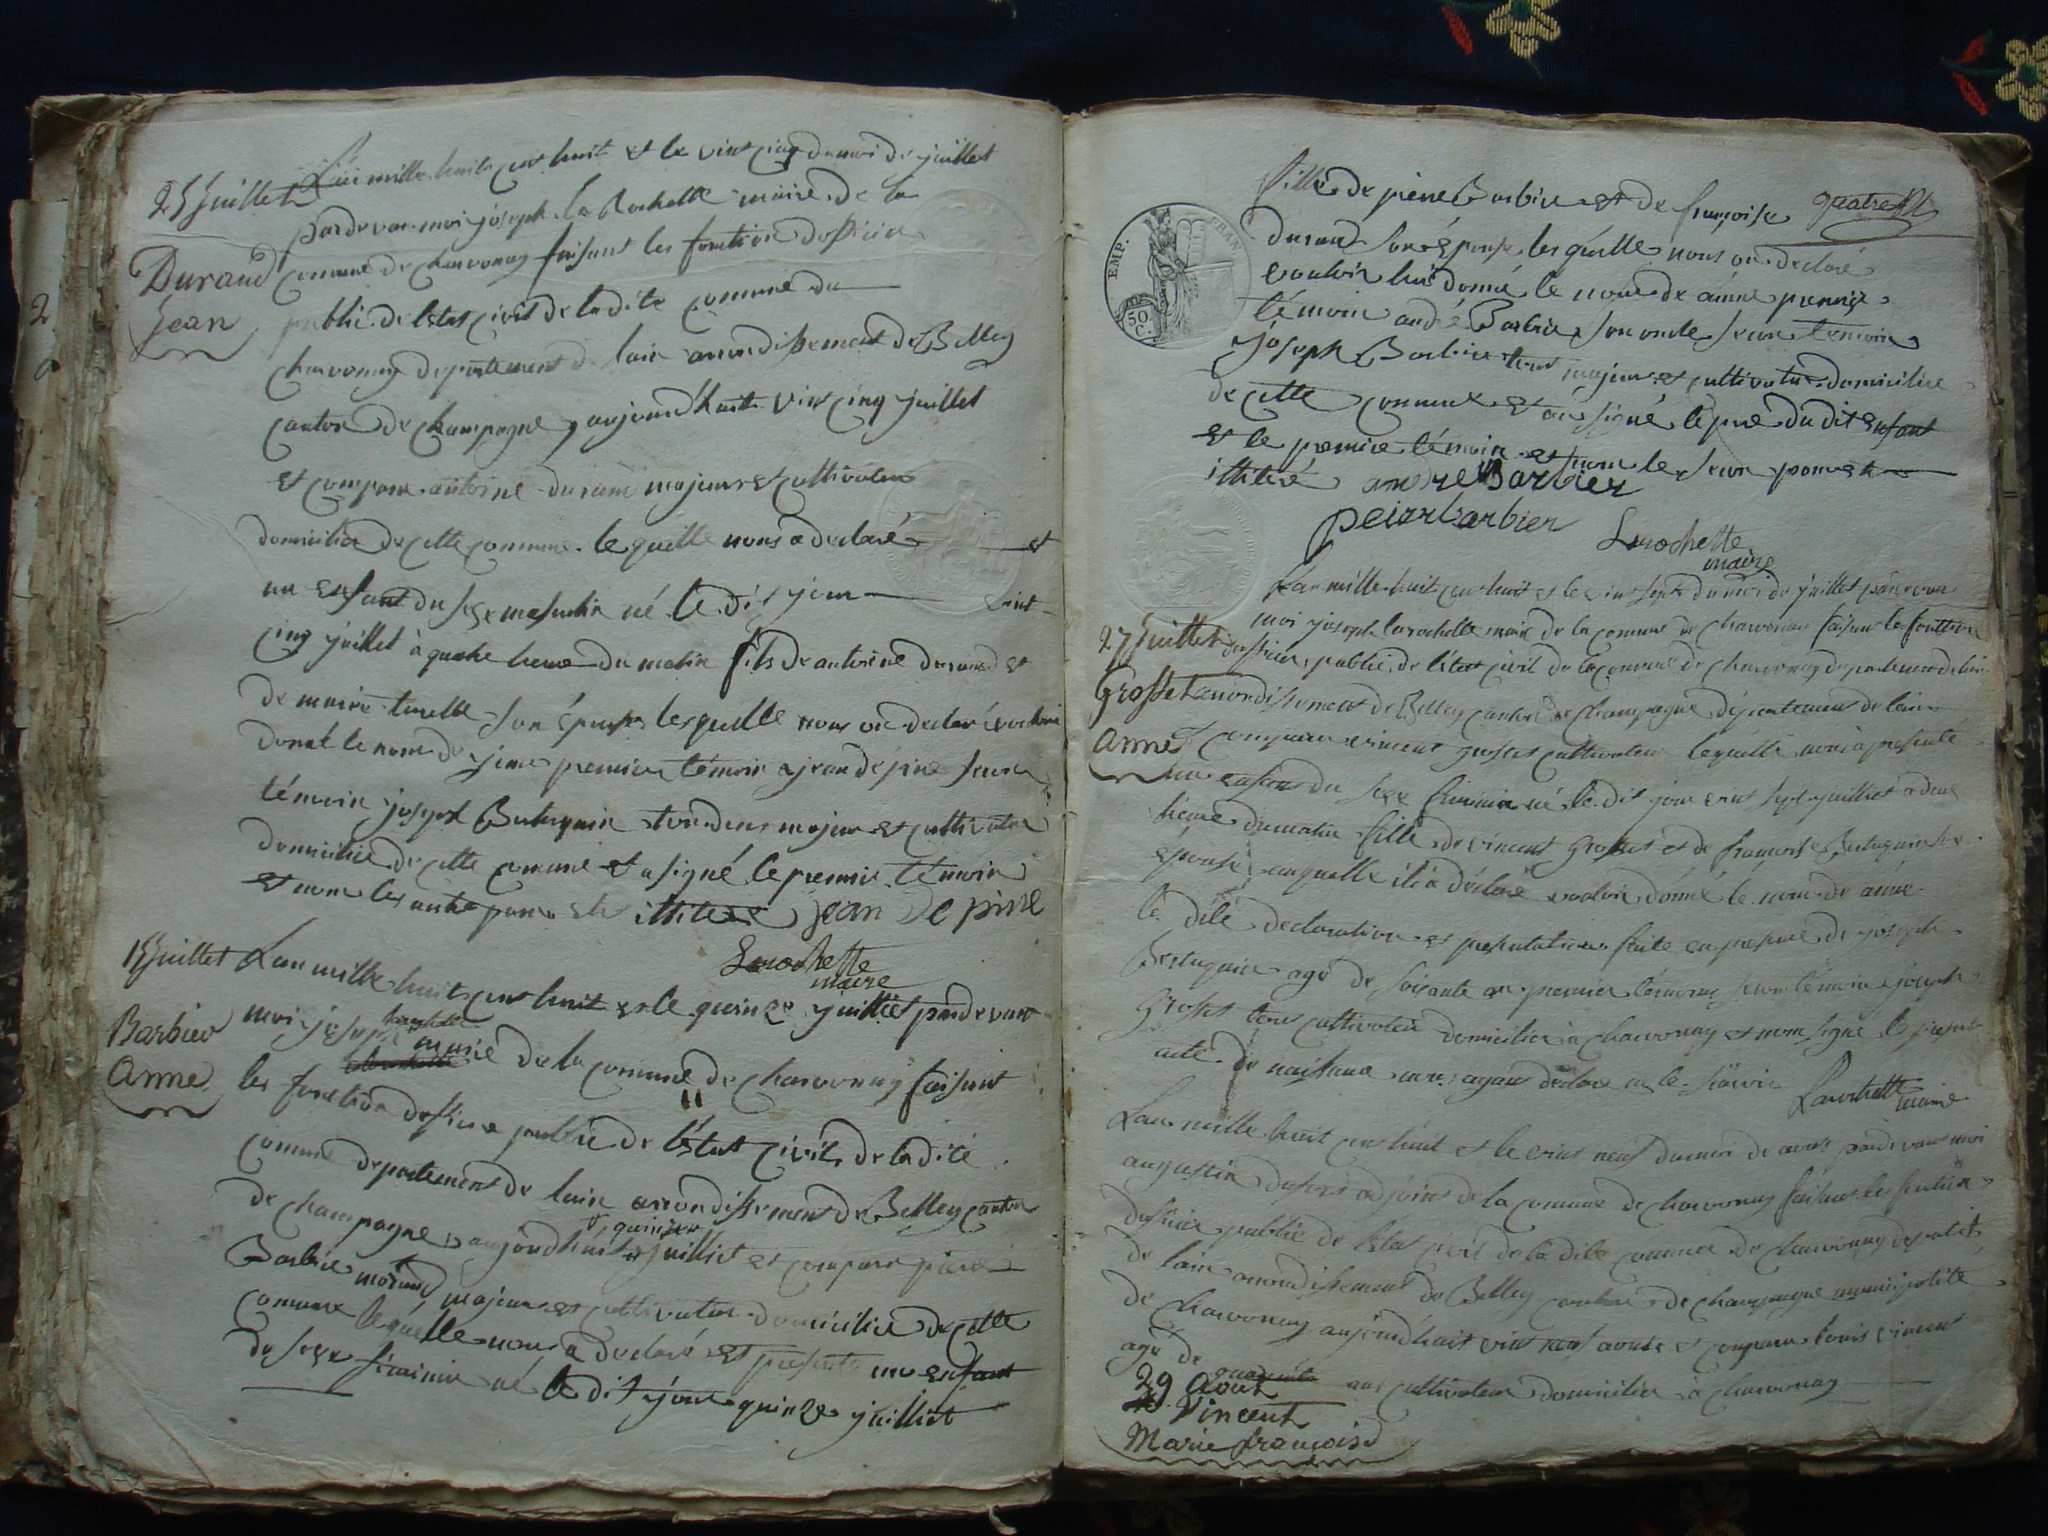 25 Juillet
Durand
Jean
L'an mille huit cent huit et le vint cinq du moi de juillet
pardevan moi joseph la Rochette maire de la
comune de charvonay faisant les fonction dofficier
publié de letat civil de ladite comune du
charvonay departement de lain arrondissement de Belley
canton de champagne aujourdhuit vint cinq juillet
et comparu antoine durand majeur et cultivateur
domicilié de cette comune le quelle nous a declaré et
un enfant du sexe masculin né le dit jour vint
cinq juillet à quatre heure du matin fils de antoine durand et
de marie turelle son épouse lesquelle nous on declaré vouloir
donné le nom de jean premier témoin jean dépine secon
témoin joseph Berluquin tou deux majeur et cultivateur
domicilié de cette comune et a signé le premié témoin
et nom les autre pour etre illiteré jean De pine
Larochette
maire
15 Juillet
Barbier
Anne
L'an mille huit cent huit et le quinze juilliet pardevant
moi joseph larochette maire de la comune de charvonay faisant
les fonction dofficie publié de l'état civil de ladité
comune departement de lain arrondissement de Belley canton
de champagne aujourdhuit quinze juilliet et comparu piere
Barbié morand majeur et cultivateur domicilié de cette
comune lequelle nous a declaré et presenté un enfant
du sexe féminin né le dit jour quinze juilliet
quatre
EMP. FRAN
50 C.
fille de piere Barbier et de françoise
durand son épouse lesquelle nous on declaré
vouloir lui donné le nom de anne premier
témoin andré Barbier son oncle secon temoin
joseph Barbier tous majeur et cultivateur domicilié
de cette comune et on signé le pere du dit enfant
et le premié témoin et nom le secon pour etre
illiteré andre Barbier
peiar barbier
Larochette
maire
27 Juillet
Grosset
Anne
L'an mille huit cent huit et le vint sept du moi de juillet pardevan
moi joseph larochette maire de la comune de charvonay faisan les fonction
dofficier publié de l'état civil de la comune de charvonay departement de lain
arrondissement de Belley canton de champagne département de lain
et comparu vincent grosset cultivateur lequelle nous a presenté
un enfant du sexe féminin né le dit jour vint sept juilliet a deux
heure du matin fille de vincent grosset et de françoise Berluquin son
épouse auquelle il a déclaré vouloir donné le nom de anne
la dite declaration et presentation faite en presence de joseph
Berluquin agé de soisante an premier témoins secon témoin joseph
Grosset tous cultivateur domicilié à charvonay et nom signé le present
acte de naissance nous ayant déclaré ne le savoir
Larochette
maire
L'an mille huit cent huit et le vint neuf du moi de aout pardevant moi
augustin dufour adjoint de la comune de charvonay faisant les fonction
dofficier publié de l'état civil de la dite comune de charvonay departt
de lain arrondissement de Belley canton de champagne municipalité
de charvonay aujourdhuit vint neuf aoust et comparu louis vincent
agé de quarante ans cultivateur domicilié à charvonay
29 Aout
Vincent
Marie françoise